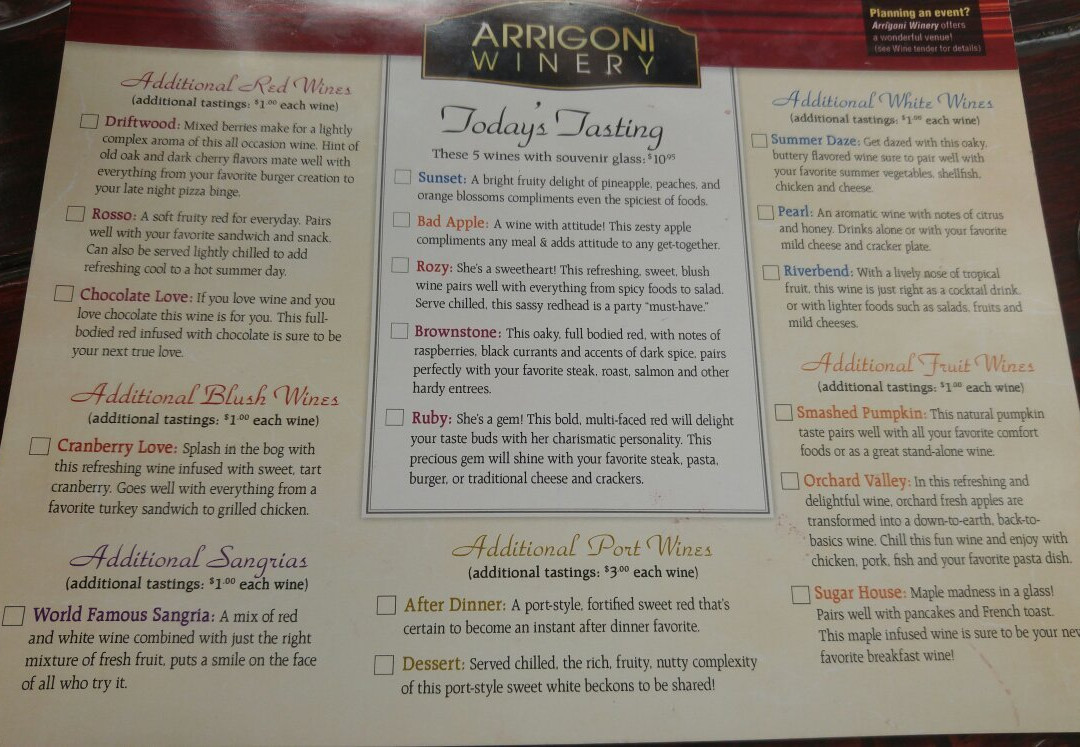 ARRIGONI
WINERY
Planning an event?
Arrigoni Winery offers
a wonderful venue!
(see Wine tender for details)
Additional Red Wines
(additional tastings: $1.00 each wine)
Driftwood: Mixed berries make for a lightly
complex aroma of this all occasion wine. Hint of
old oak and dark cherry flavors mate well with
everything from your favorite burger creation to
your late night pizza binge.
Rosso: A soft fruity red for everyday. Pairs
well with your favorite sandwich and snack.
Can also be served lightly chilled to add
refreshing cool to a hot summer day.
Chocolate Love: If you love wine and you
love chocolate this wine is for you. This full-
bodied red infused with chocolate is sure to be
your next true love.
Additional Blush Wines
(additional tastings: $1.00 each wine)
Cranberry Love: Splash in the bog with
this refreshing wine infused with sweet, tart
cranberry. Goes well with everything from a
favorite turkey sandwich to grilled chicken.
Additional Sangrias
(additional tastings: $1.00 each wine)
World Famous Sangria: A mix of red
and white wine combined with just the right
mixture of fresh fruit, puts a smile on the face
of all who try it.
Today's Tasting
These 5 wines with souvenir glass: $10.95
Sunset: A bright fruity delight of pineapple, peaches, and
orange blossoms compliments even the spiciest of foods.
Bad Apple: A wine with attitude! This zesty apple
compliments any meal & adds attitude to any get-together.
Rozy: She's a sweetheart! This refreshing, sweet, blush
wine pairs well with everything from spicy foods to salad.
Serve chilled, this sassy redhead is a party "must-have."
Brownstone: This oaky, full bodied red, with notes of
raspberries, black currants and accents of dark spice, pairs
perfectly with your favorite steak, roast, salmon and other
hardy entrees.
Ruby: She's a gem! This bold, multi-faced red will delight
your taste buds with her charismatic personality. This
precious gem will shine with your favorite steak, pasta,
burger, or traditional cheese and crackers.
Additional Port Wines
(additional tastings: $3.00 each wine)
After Dinner: A port-style, fortified sweet red that's
certain to become an instant after dinner favorite.
Dessert: Served chilled, the rich, fruity, nutty complexity
of this port-style sweet white beckons to be shared!
Additional White Wines
(additional tastings: $1.00 each wine)
Summer Daze: Get dazed with this oaky,
buttery flavored wine sure to pair well with
your favorite summer vegetables, shellfish,
chicken and cheese.
Pearl: An aromatic wine with notes of citrus
and honey. Drinks alone or with your favorite
mild cheese and cracker plate.
Riverbend: With a lively nose of tropical
fruit, this wine is just right as a cocktail drink,
or with lighter foods such as salads, fruits and
mild cheeses.
Additional Fruit Wines
(additional tastings: $1.00 each wine)
Smashed Pumpkin: This natural pumpkin
taste pairs well with all your favorite comfort
foods or as a great stand-alone wine.
Orchard Valley: In this refreshing and
delightful wine, orchard fresh apples are
transformed into a down-to-earth, back-to-
basics wine. Chill this fun wine and enjoy with
chicken, pork, fish and your favorite pasta dish.
Sugar House: Maple madness in a glass!
Pairs well with pancakes and French toast.
This maple infused wine is sure to be your new
favorite breakfast wine!